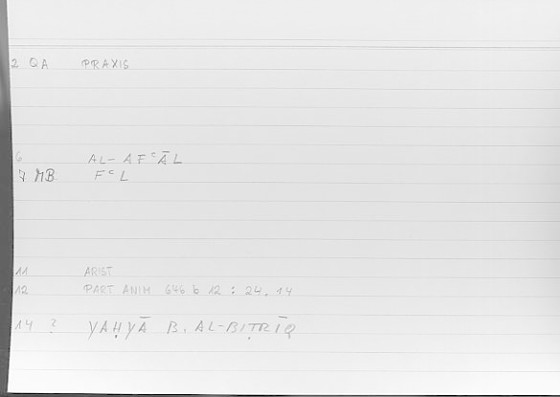 2 QA PRAXIS
6 AL-AFʿĀL
7 MB FʿL
11 ARIST
12 PART ANIM 646 b 12 : 24, 14
14 ? YAḤYĀ B. AL-BIṬRĪQ